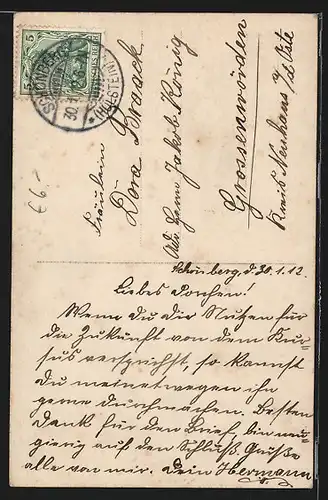 5
DEUTSCHES REICH
SCHÖNBERG
(HOLSTEIN)
30.1.
66.-
Fräulein
Dora Braack
Adr. Herrn Jakob König
Grossenwörden
Kreis Neuhaus /d Oste
Schönberg, d. 30.1.12.
Liebes Dorchen!
Wenn du dir Nutzen für
die Zukunft von dem Kur=
sus versprichst, so kannst
du meinetwegen ihn
gerne durchmachen. Besten
Dank für den Brief, bin neu=
gierig auf den Schluß. Grüße
alle von mir. Dein Hermann